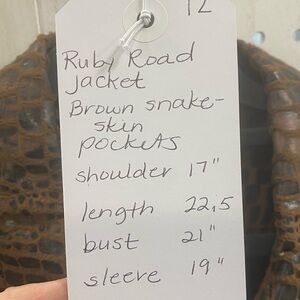 12
Ruby Road
Jacket
Brown snake-
skin
pockets
shoulder 17"
length 22,5
bust 21"
sleeve 19"